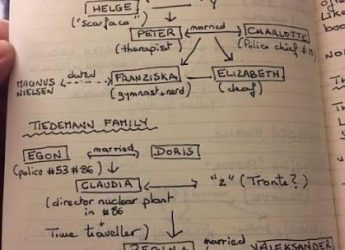 HELGE
("scarface")
PETER married CHARLOTTE
(therapist) (Police chief
MAGNUS NIELSEN dated FRANZISKA ELIZABETH
(gymnast+nerd) (deaf)
TIEDEMANN FAMILY
EGON married DORIS
(police #53 #86)
CLAUDIA "2" (Tronte?)
(director nuclear plant
in #86
+
Time traveller)
REGINA married ALEKSANDER